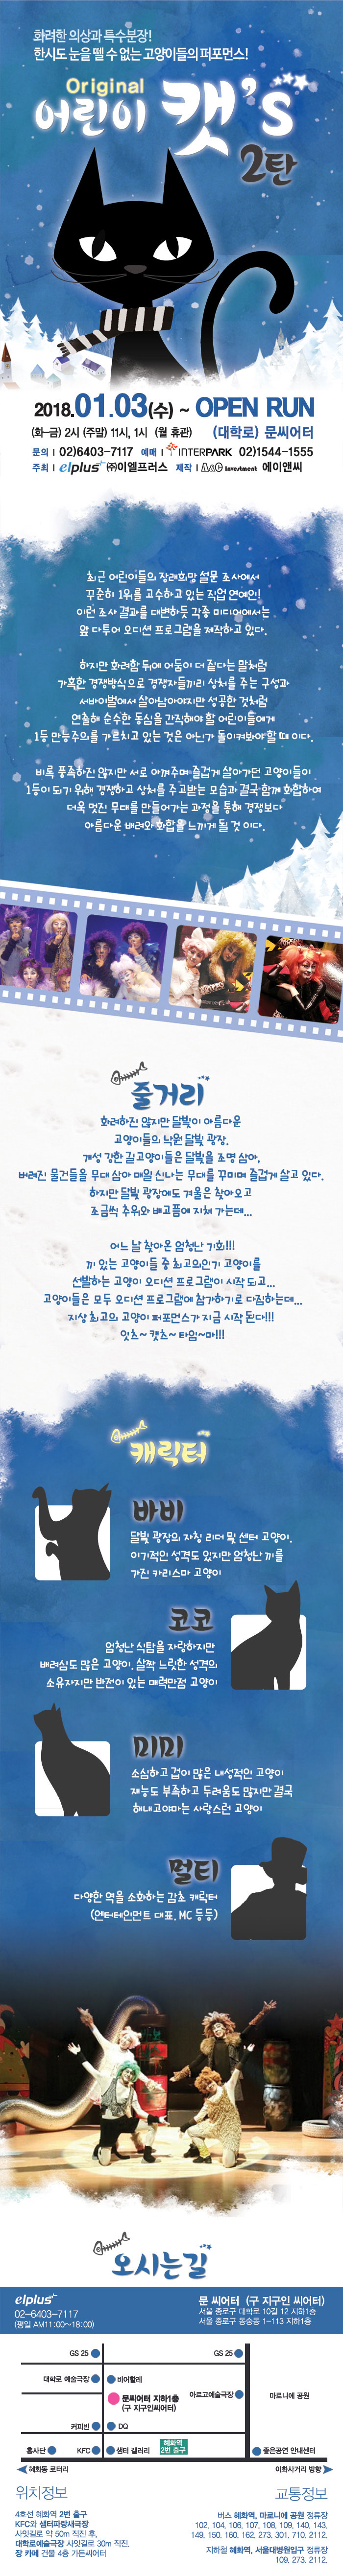 화려한 의상과 특수분장!
한시도 눈을 뗄 수 없는 고양이들의 퍼포먼스!
Original
어린이 캣's
2탄
2018.01.03(수) ~ OPEN RUN
(화-금) 2시 (주말) 11시, 1시 (월 휴관) (대학로) 문씨어터
문의 | 02)6403-7117 예매 | INTERPARK 02)1544-1555
주최 | elplus (주)이엘프러스 제작 | A&C Investment 에이앤씨
최근 어린이들의 장래희망 설문 조사에서
꾸준히 1위를 고수하고 있는 직업 연예인!
이런 조사 결과를 대변하듯 각종 미디어에서는
앞 다투어 오디션 프로그램을 제작하고 있다.
하지만 화려함 뒤에 어둠이 더 짙다는 말처럼
가혹한 경쟁방식으로 경쟁자들끼리 상처를 주는 구성과
서바이벌에서 살아남아야지만 성공한 것처럼
연출해 순수한 동심을 간직해야 할 어린이들에게
1등 만능주의를 가르치고 있는 것은 아닌가 돌이켜봐야 할 때 이다.
비록 풍족하진 않지만 서로 아껴주며 즐겁게 살아가던 고양이들이
1등이 되기 위해 경쟁하고 상처를 주고받는 모습과 결국 함께 화합하여
더욱 멋진 무대를 만들어가는 과정을 통해 경쟁보다
아름다운 배려와 화합을 느끼게 될 것 이다.
줄거리
화려하진 않지만 달빛이 아름다운
고양이들의 낙원 달빛 광장.
개성 강한 길고양이들은 달빛을 조명 삼아,
버려진 물건들을 무대 삼아 매일 신나는 무대를 꾸미며 즐겁게 살고 있다.
하지만 달빛 광장에도 겨울은 찾아오고
조금씩 추위와 배고픔에 지쳐 가는데...
어느 날 찾아온 엄청난 기회!!!
끼 있는 고양이들 중 최고의인기 고양이를
선발하는 고양이 오디션 프로그램이 시작 되고...
고양이들은 모두 오디션 프로그램에 참가하기로 다짐하는데...
지상 최고의 고양이 퍼포먼스가 지금 시작 된다!!!
잇츠~ 캣츠~ 타임~마!!!
캐릭터
바비
달빛 광장의 자칭 리더 및 센터 고양이.
이기적인 성격도 있지만 엄청난 끼를
가진 카리스마 고양이
코코
엄청난 식탐을 자랑하지만
배려심도 많은 고양이. 살짝 느릿한 성격의
소유자지만 반전이 있는 매력만점 고양이
미미
소심하고 겁이 많은 내성적인 고양이
재능도 부족하고 두려움도 많지만 결국
해내고야마는 사랑스런 고양이
멀티
다양한 역을 소화하는 감초 캐릭터
(엔터테인먼트 대표, MC 등등)
오시는길
elplus
02-6403-7117
(평일 AM11:00~18:00)
문 씨어터 (구 지구인 씨어터)
서울 종로구 대학로 10길 12 지하1층
서울 종로구 동숭동 1-113 지하1층
GS 25
GS 25
대학로 예술극장
비어할레
문씨어터 지하1층
(구 지구인씨어터)
아르고예술극장
마로니에 공원
커피빈
DQ
혜화역
2번 출구
흥사단
KFC
샘터 갤러리
좋은공연 안내센터
혜화동 로터리
이화사거리 방향
위치정보
4호선 혜화역 2번 출구
KFC와 샘터파랑새극장
사잇길로 약 50m 직진 후,
대학로예술극장 사잇길로 30m 직진,
장 카페 건물 4층 가든씨어터
교통정보
버스 혜화역, 마로니에 공원 정류장
102, 104, 106, 107, 108, 109, 140, 143,
149, 150, 160, 162, 273, 301, 710, 2112,
지하철 혜화역, 서울대병원입구 정류장
109, 273, 2112,